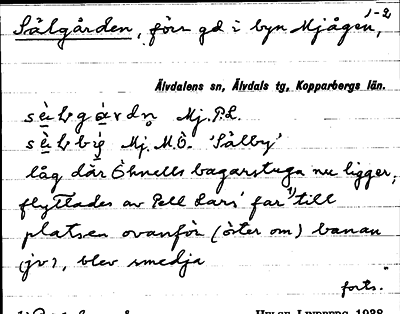 1-2
Sälgården, förr gd i byn Mjågen,
Älvdalens sn, Älvdals tg, Kopparbergs län.
sὲlgárdn̥ Mj. P.L.
Mj. M.Ö. 'Sälby'
låg där Öhnells bagarstuga nu ligger,
flyttades av Pell Lars' far 1) till
platsen ovanför (öster om) banan
(jv), blev smedja
forts.
LINDBERG, 1938